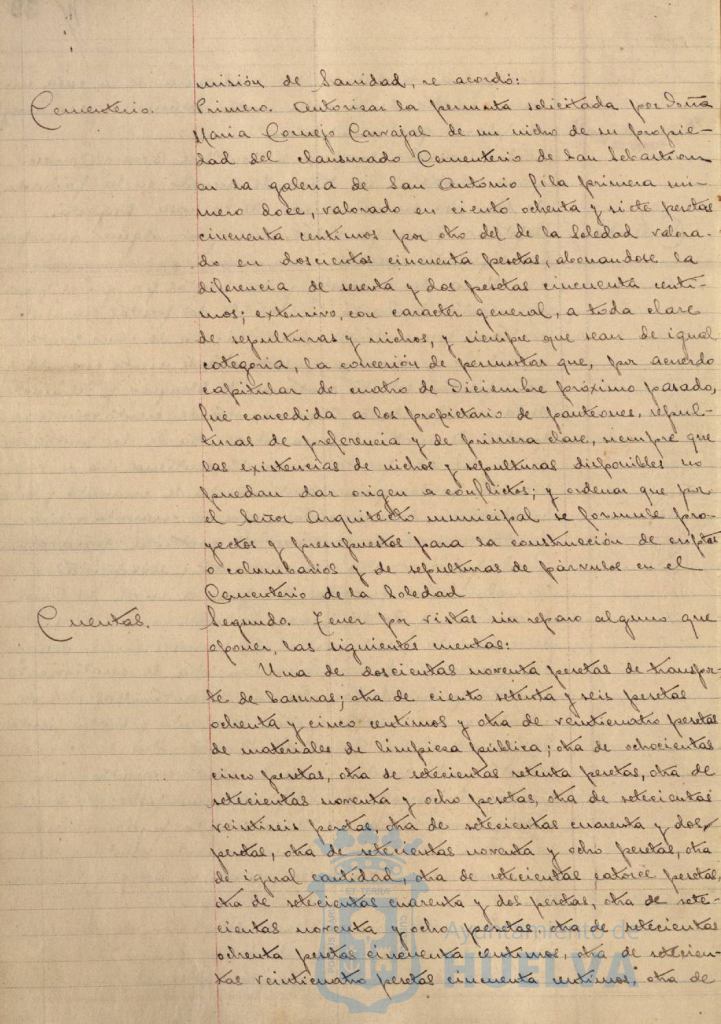 misión de Sanidad, se acordó:
Cementerio.
Primero. Autorizar la permuta solicitada por Doña
María Cornejo Carvajal de un nicho de su propie-
dad del clausurado Cementerio de San Sebastián
en la galeria de San Antonio fila primera nú-
mero doce, valorado en ciento ochenta y siete pesetas
cincuenta centimos por otro del de la Soledad valora-
do en doscientos cincuenta pesetas, abonandose la
diferencia de sesenta y dos pesetas cincuenta centi-
mos; extensivo, con caracter general, a toda clase
de sepulturas y nichos, y siempre que sean de igual
categoria, la concesión de permutas que, por acuerdo
capitular de cuatro de Diciembre próximo pasado,
fué concedida a los propietario de panteones, sepul-
turas de preferencia y de primera clase, siempre que
las existencias de nichos y sepulturas disponibles no
puedan dar origen a conflictos; y ordenar que por
el Señor Arquitecto municipal se formule pro-
yectos y presupuestos para la construcción de criptas
o columbarios y de sepulturas de párvulos en el
Cementerio de la Soledad
Cuentas.
Segundo. Tener por vistas sin reparo alguno que
oponer, las siguientes cuentas:
Una de doscientas noventa pesetas de transpor-
te de basuras; otra de ciento setenta y seis pesetas
ochenta y cinco centimos y otra de veinticuatro pesetas
de materiales de limpieza pública; otra de ochocientas
cinco pesetas, otra de setecientas setenta pesetas, otra de
setecientas noventa y ocho pesetas, otra de setecientas
veintiseis pesetas, otra de setecientas cuarenta y dos
pesetas, otra de setecientas noventa y ocho pesetas, otra
de igual cantidad, otra de setecientas catorce pesetas,
otra de setecientas cuarenta y dos pesetas, otra de sete-
cientas noventa y ocho pesetas, otra de setecientas
ochenta pesetas cincuenta centimos, otra de setecien-
tas veinticuatro pesetas cincuenta centimos, otra de
Ayuntamiento de
HUELVA